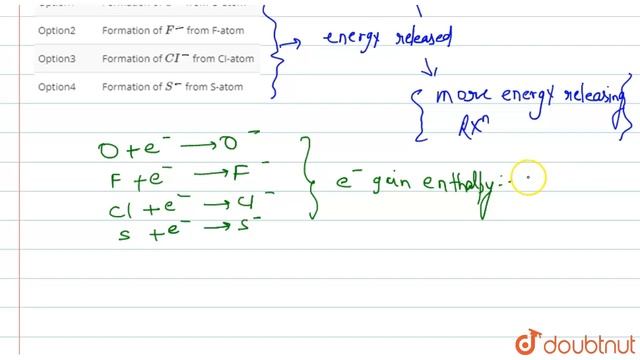 Option2 Formation of F⁻ from F-atom
Option3 Formation of Cl⁻ from Cl-atom
Option4 Formation of S⁻ from S-atom
energy released
more energy releasing
RXⁿ
O + e⁻ → O⁻
F + e⁻ → F⁻
Cl + e⁻ → Cl⁻
S + e⁻ → S⁻
e⁻ gain enthalpy:-
doubtnut